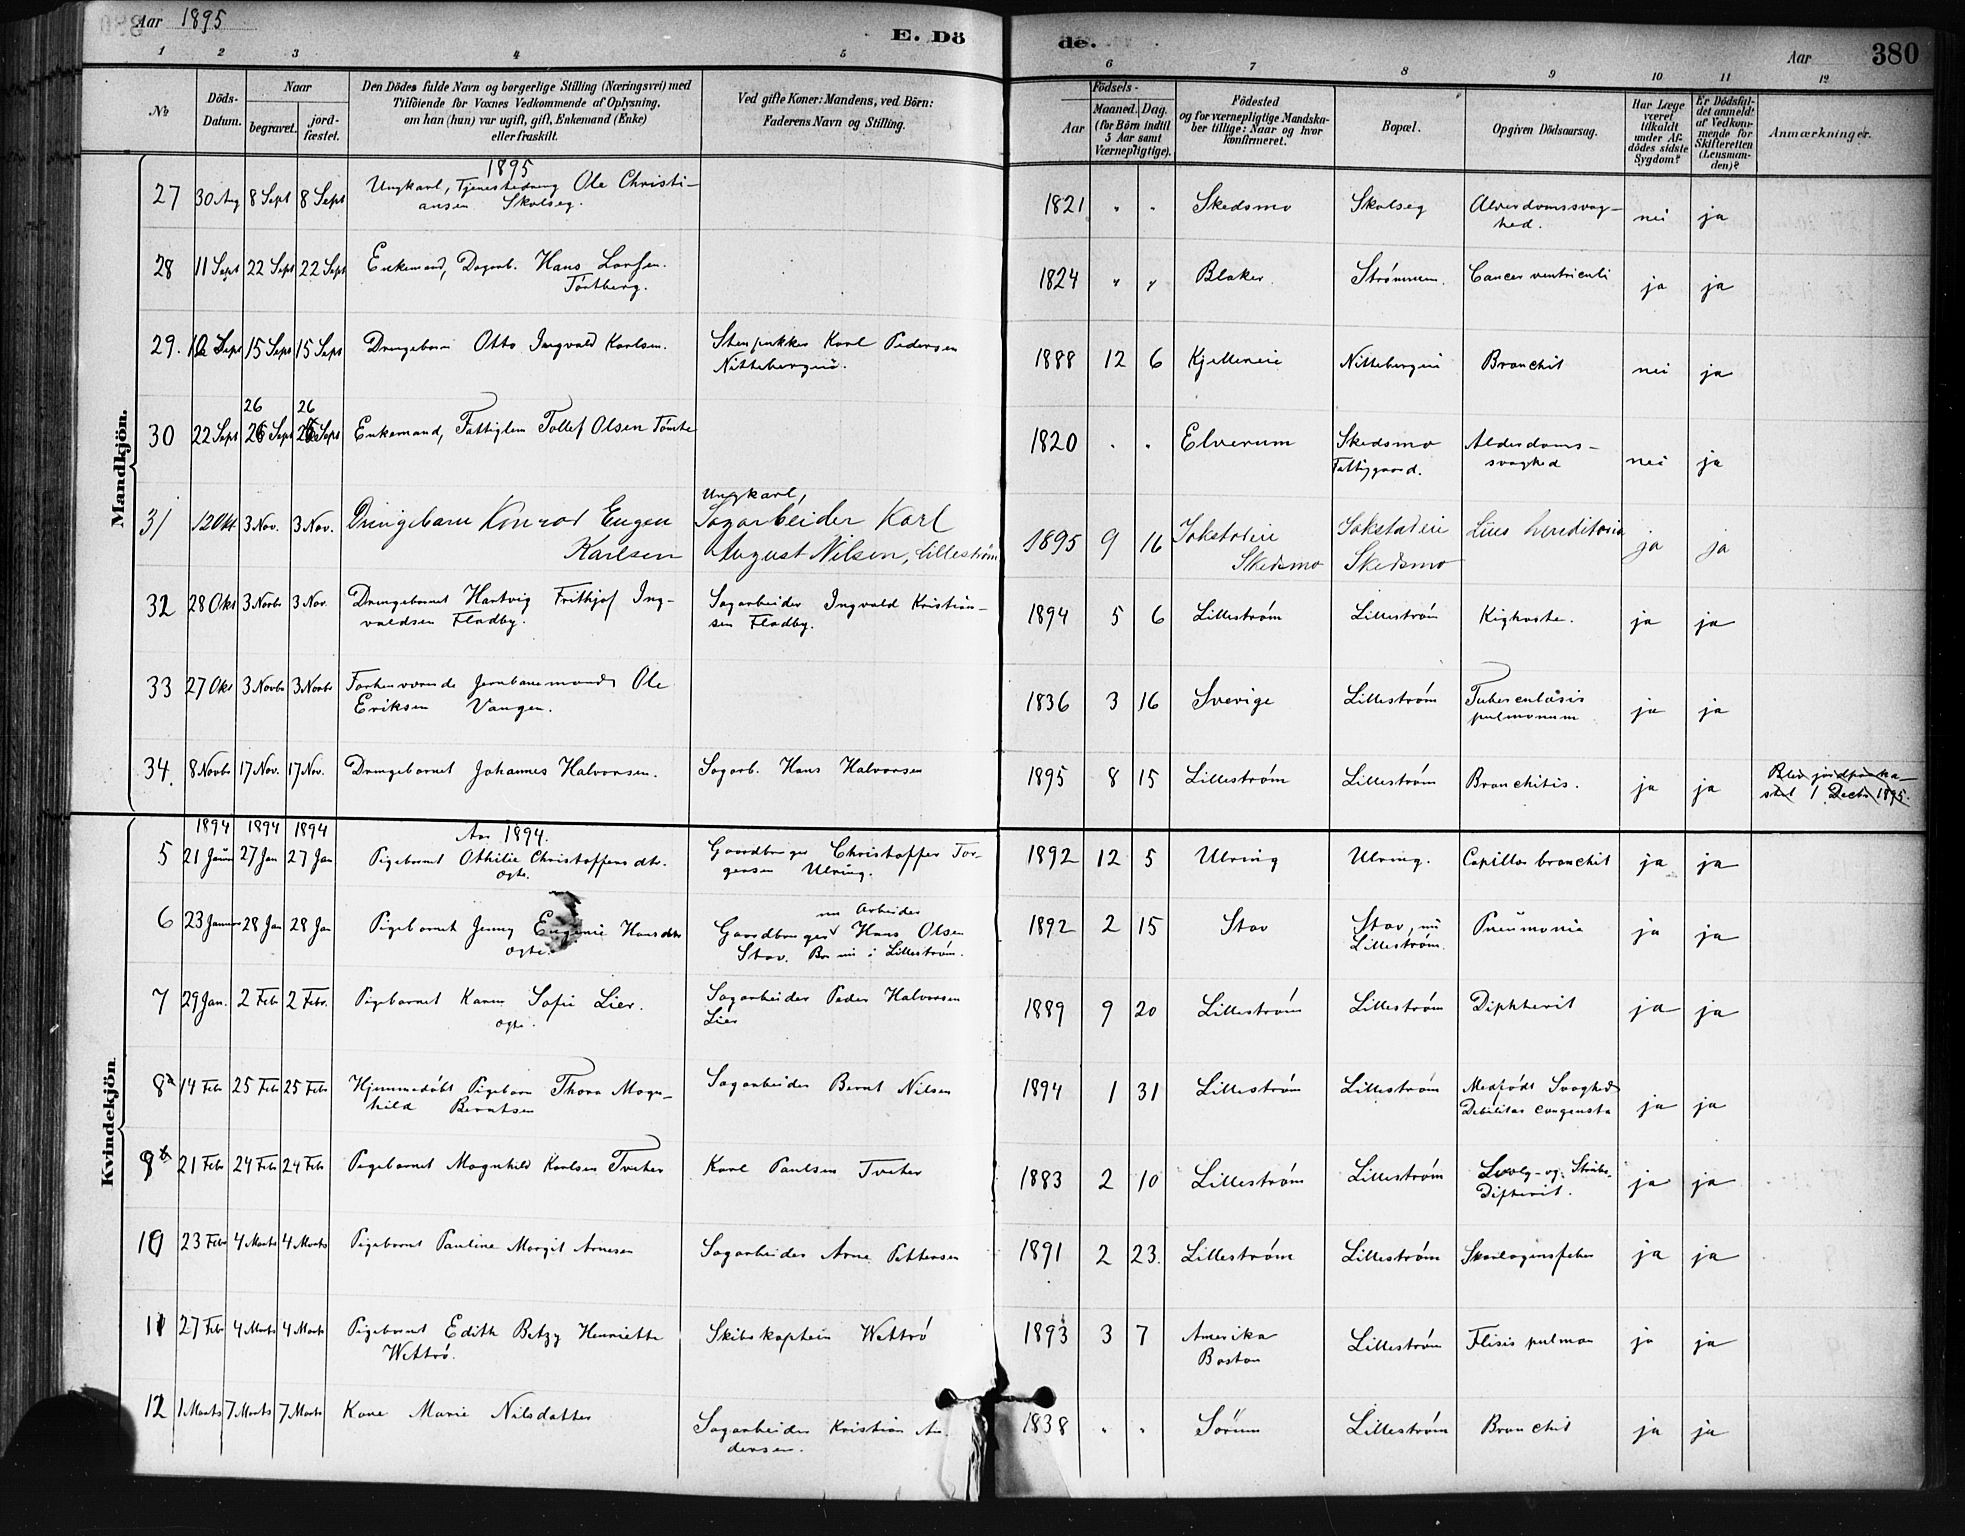 Aar 1895
E. Dö
de.
Aar
380
1 2 3 4 5 6 7 8 9 10 11 12
№
Döds-Datum.
Naar
begravet.
jord-fæstet.
Den Dödes fulde Navn og borgerlige Stilling (Næringsvei) med
Tilföiende for Voxnes Vedkommende af Oplysning,
om han (hun) var ugift, gift, Enkemand (Enke)
eller fraskilt.
Ved gifte Koner: Mandens, ved Börn:
Faderens Navn og Stilling.
Födsels-
Aar
Maaned. Dag.
(for Börn indtil
5 Aar samt
Værnepligtige).
Födested
og for værnepligtige Mandska-
ber tillige: Naar og hvor
konfirmeret.
Bopæl.
Opgiven Dödsaarsag.
Har Læge
været
tilkaldt
under Af-
dödes sidste
Sygdom?
Er Dödsfal-
det anmeldt
af Vedkom-
mende for
Skifteretten
(Lensman-
den)?
Anmærkninger.
Mandkjön.
1895
27 30 Aug 8 Sept 8 Sept Ungkarl, Ole Christi-
ansen Skolseg.
1821 " " Skedsmo Skolseg Alderdomssvag-
hed. nei ja
28 11 Sept 22 Sept 22 Sept Enkemand, Dagarb. Hans Larsen
Tórtberg.
1824 " " Blaker Strømmen. Cancer ventriculi ja ja
29. 10 Sept 15 Sept 15 Sept Drengebarn Otto Ingvald Karlsen.
Stenpukker Karl Pedersen
Nittebergeie.
1888 12 6 Kjelleneie Nittebergeie Bronchit nei ja
26 26
30 22 Sept 26 Sept 26 Sept Enkemand, Fattiglem Tollef Olsen Tömte
1820 " " Elverum Skedsmo
Fattiggaard. Alderdoms-
svaghed nei ja
31 12 Okt 3 Nov. 3 Nov. Drengebarn Konrad Eugen
Karlsen
Ungkarl,
Sagarbeider Karl
August Nilsen, Lillestrøm
1895 9 16 Sokstadeie
Skedsmo Sokstadeie
Skedsmo Lües hereditaria ja ja
32 28 Okt 3 Novbr 3 Nov. Drengebarnet Hartvig Frithjof Ing-
valdsen Fladby.
Sagarbeider Ingvald Kristian-
sen Fladby.
1894 5 6 Lillestrøm Lillestrøm Kighoste. ja ja
33 27 Okt 3 Novbr 3 Novbr Forhenværende Jernbanemand Ole
Eriksen Vangen.
1836 3 16 Sverige Lillestrøm Tuberculosis
pulmonum ja ja
34. 8 Novbr 17 Nov. 17 Nov. Drengebarnet Johannes Halvorsen.
Sagarb. Hans Halvorsen
1895 8 15 Lillestrøm Lillestrøm Bronchitis. ja ja
Blev jordpaaka-
stet 1 Decbr 1895.
Kvindekjön
1894 1894 1894 Aar 1894.
5 21 Januar 27 Jan 27 Jan Pigebarnet Othilie Christoffersdtr.
ægte.
Gaardbruger Christoffer Tor-
gersen Ulving.
1892 12 5 Ulving Ulving. Capillær bronchit ja ja
6 23 Januar 28 Jan 28 Jan Pigebarnet Jenny Eugenie Hansdtr
ægte.
nu Arbeider
Gaardbruger Hans Olsen
Stav. Bor nu i Lillestrøm.
1892 2 15 Stav Stav, nu
Lillestrøm. Pneumonie ja ja
7 29 Jan. 2 Febr 2 Febr. Pigebarnet Karen Sofie Lier.
ægte.
Sagarbeider Peder Halvorsen
Lier
1889 9 20 Lillestrøm Lillestrøm Diphterit ja ja
8a 14 Febr 25 Febr 25 Febr Hjemmedøbt Pigebarn Thora Magn-
hild Berntsen
Sagarbeider Bernt Nilsen
1894 1 31 Lillestrøm Lillestrøm Medfødt Svaghed
Debilitas congenita ja ja
9b 21 Febr 24 Febr 24 Febr Pigebarnet Magnhild Karlsen Tveter
Karl Paulsen Tveter
1883 2 10 Lillestrøm Lillestrøm Svælg- og Strube-
Difterit. ja ja
10 23 Febr 4 Marts 4 Marts Pigebarnet Pauline Margit Arnesen
Sagarbeider Arne Pettersen
1891 2 23. Lillestrøm Lillestrøm Skarlagensfeber ja ja
11 27 Febr 4 Marts 4 Marts Pigebarnet Edith Betzy Henriette
Wettrø.
Skibskaptein Wettrø
1893 3 7 Amerika
Boston Lillestrøm Ftisis pulmon ja ja
12 1 Marts 7 Marts 7 Marts Kone Marie Nilsdatter
Sagarbeider Kristian An-
dersen.
1838 " " Sørum Lillestrøm Bronchit ja ja